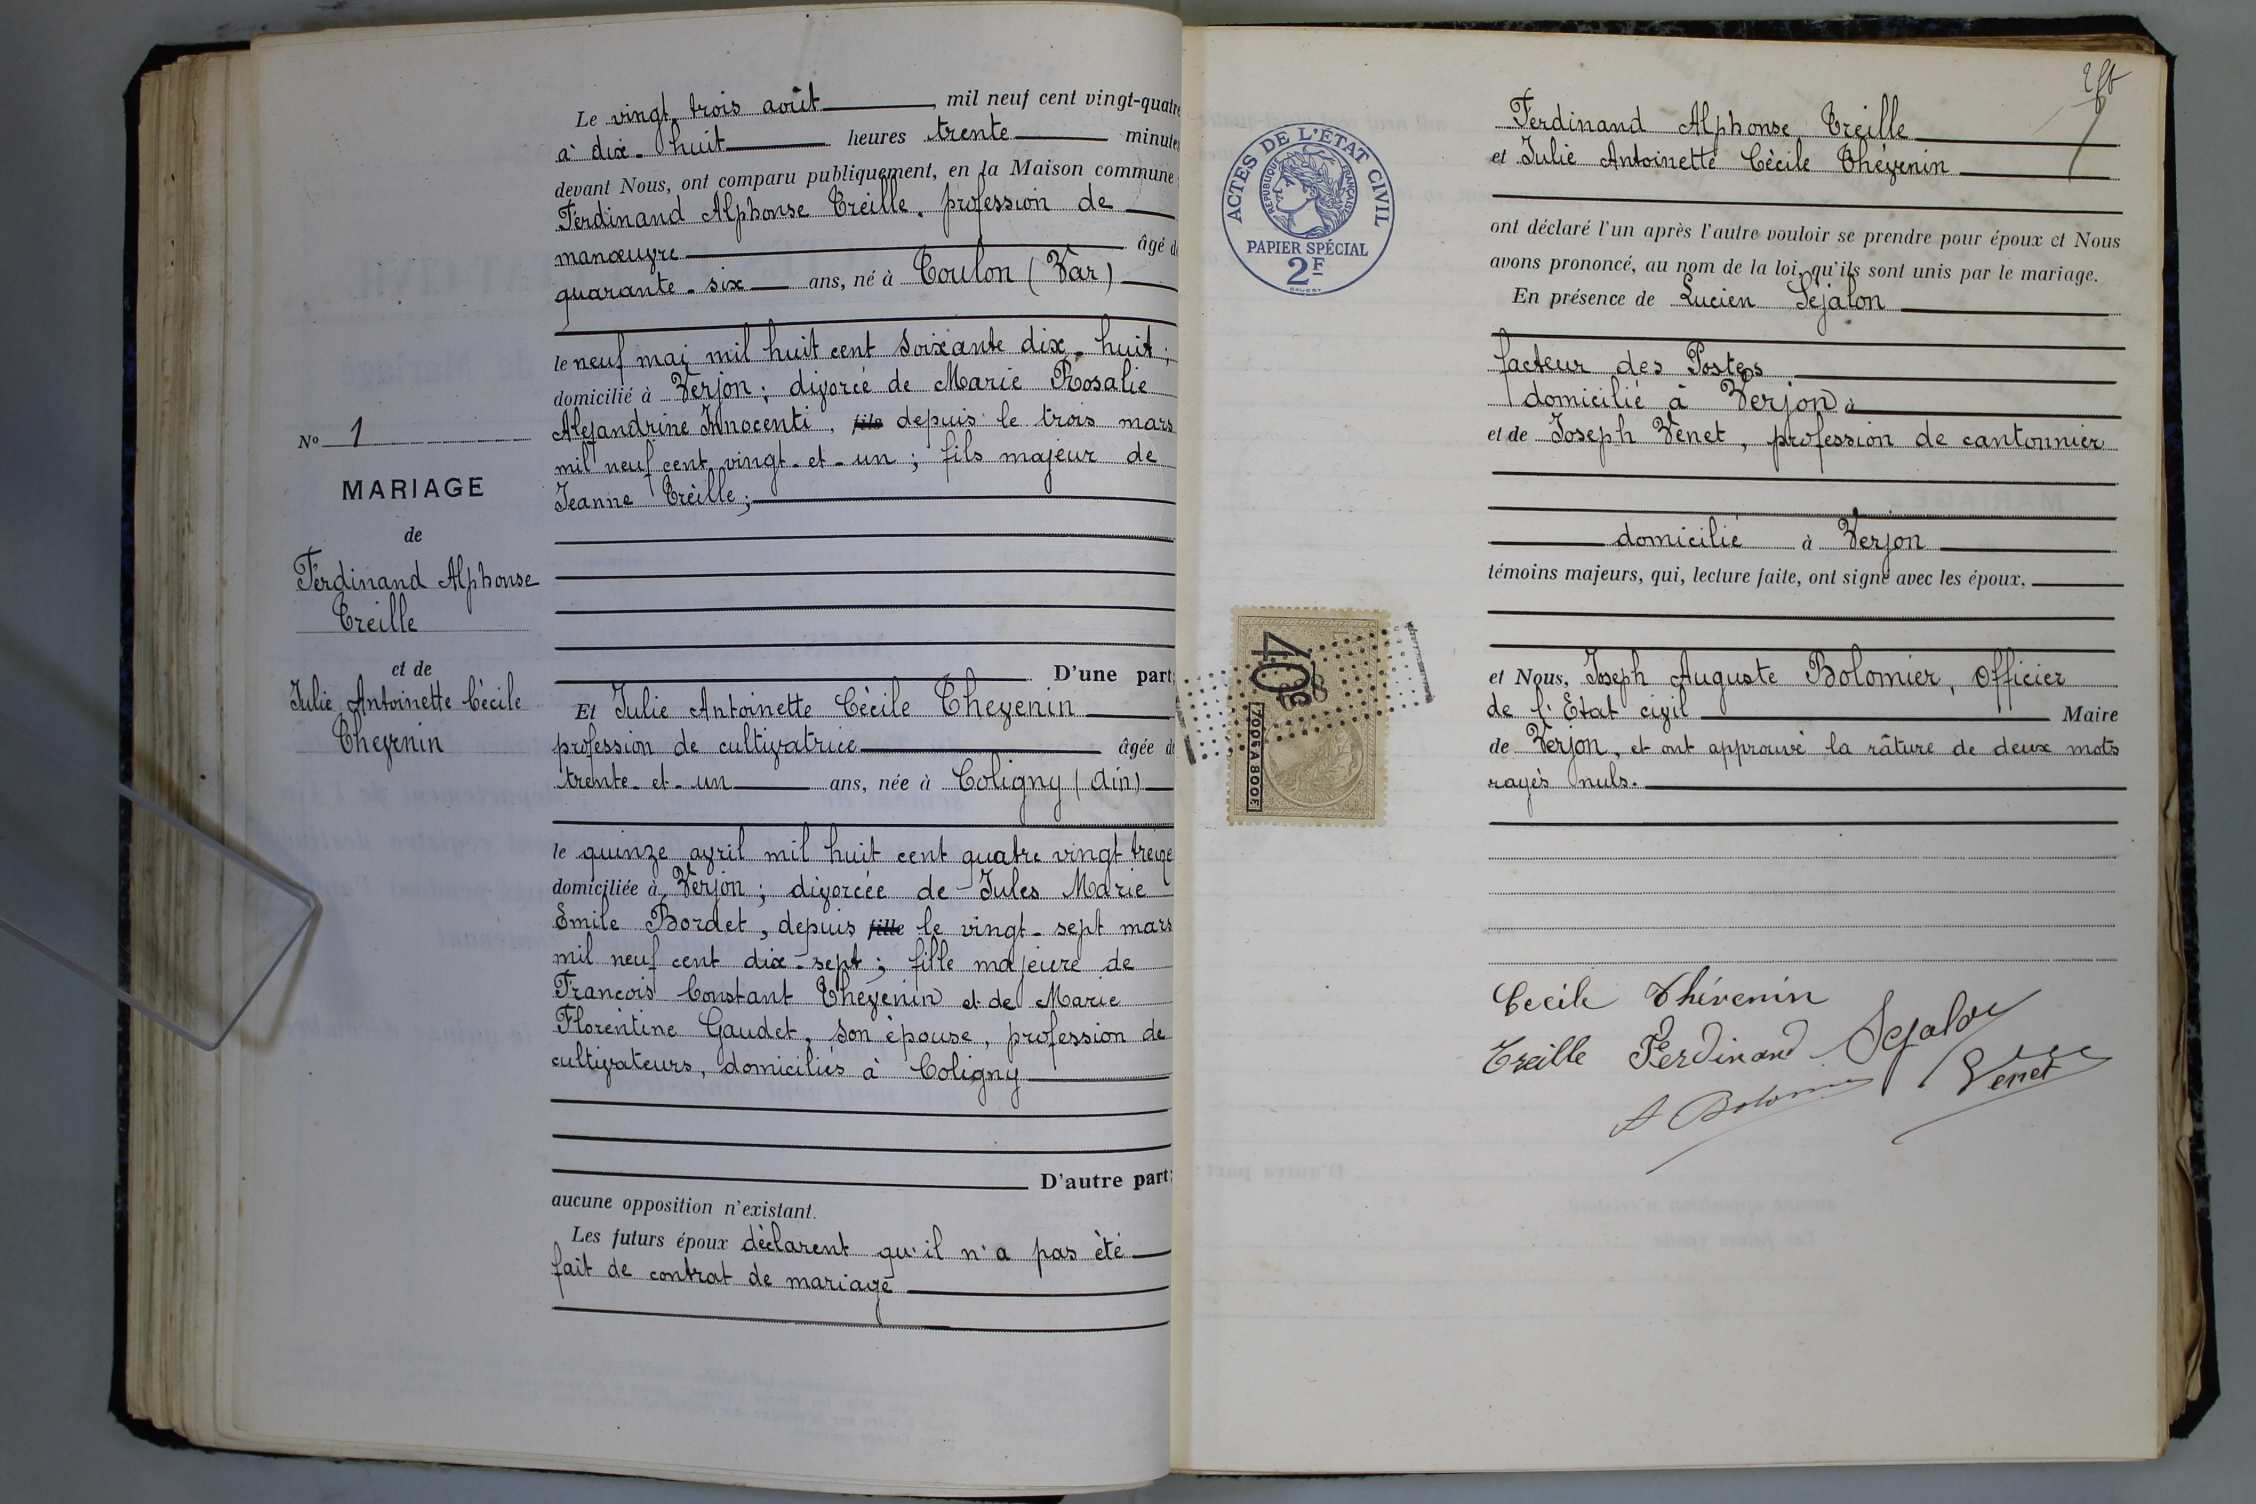 Le vingt trois août, mil neuf cent vingt-quatre
à dix-huit heures trente minutes
devant Nous, ont comparu publiquement, en la Maison commune
Ferdinand Alphonse Treille, profession de
manœuvre âgé de
quarante-six ans, né à Toulon (Var)
le neuf mai mil huit cent soixante dix-huit;
domicilié à Verjon; divorcé de Marie Rosalie
Alexandrine Innocenti, fils depuis le trois mars
mil neuf cent vingt-et-un; fils majeur de
Jeanne Treille;
D'une part;
Et Julie Antoinette Cécile Thevenin
profession de cultivatrice âgée de
trente-et-un ans, née à Coligny (Ain)
le quinze avril mil huit cent quatre vingt treize
domiciliée à Verjon; divorcée de Jules Marie
Emile Bordet, depuis fille le vingt-sept mars
mil neuf cent dix-sept; fille majeure de
François Constant Thevenin et de Marie
Florentine Gaudet, son épouse, profession de
cultivateurs, domiciliés à Coligny
D'autre part;
aucune opposition n'existant.
Les futurs époux déclarent qu'il n'a pas été
fait de contrat de mariage
No 1
MARIAGE
de
Ferdinand Alphonse
Treille
et de
Julie Antoinette Cécile
Thevenin
ACTES DE L'ÉTAT CIVIL
RÉPUBLIQUE FRANÇAISE
PAPIER SPÉCIAL
2F
40c
700F A 800F
Ferdinand Alphonse Treille
et Julie Antoinette Cécile Thévenin
ont déclaré l'un après l'autre vouloir se prendre pour époux et Nous
avons prononcé, au nom de la loi, qu'ils sont unis par le mariage.
En présence de Lucien Séjalon
facteur des Postes
domicilié à Verjon à
et de Joseph Venet, profession de cantonnier
domicilié à Verjon
témoins majeurs, qui, lecture faite, ont signé avec les époux,
et Nous, Joseph Auguste Bolomier, Officier
de l'Etat civil Maire
de Verjon, et ont approuvé la râture de deux mots
rayés nuls.
Cecile Thévenin
Treille Ferdinand Sejalon
Venet
A Bolomier